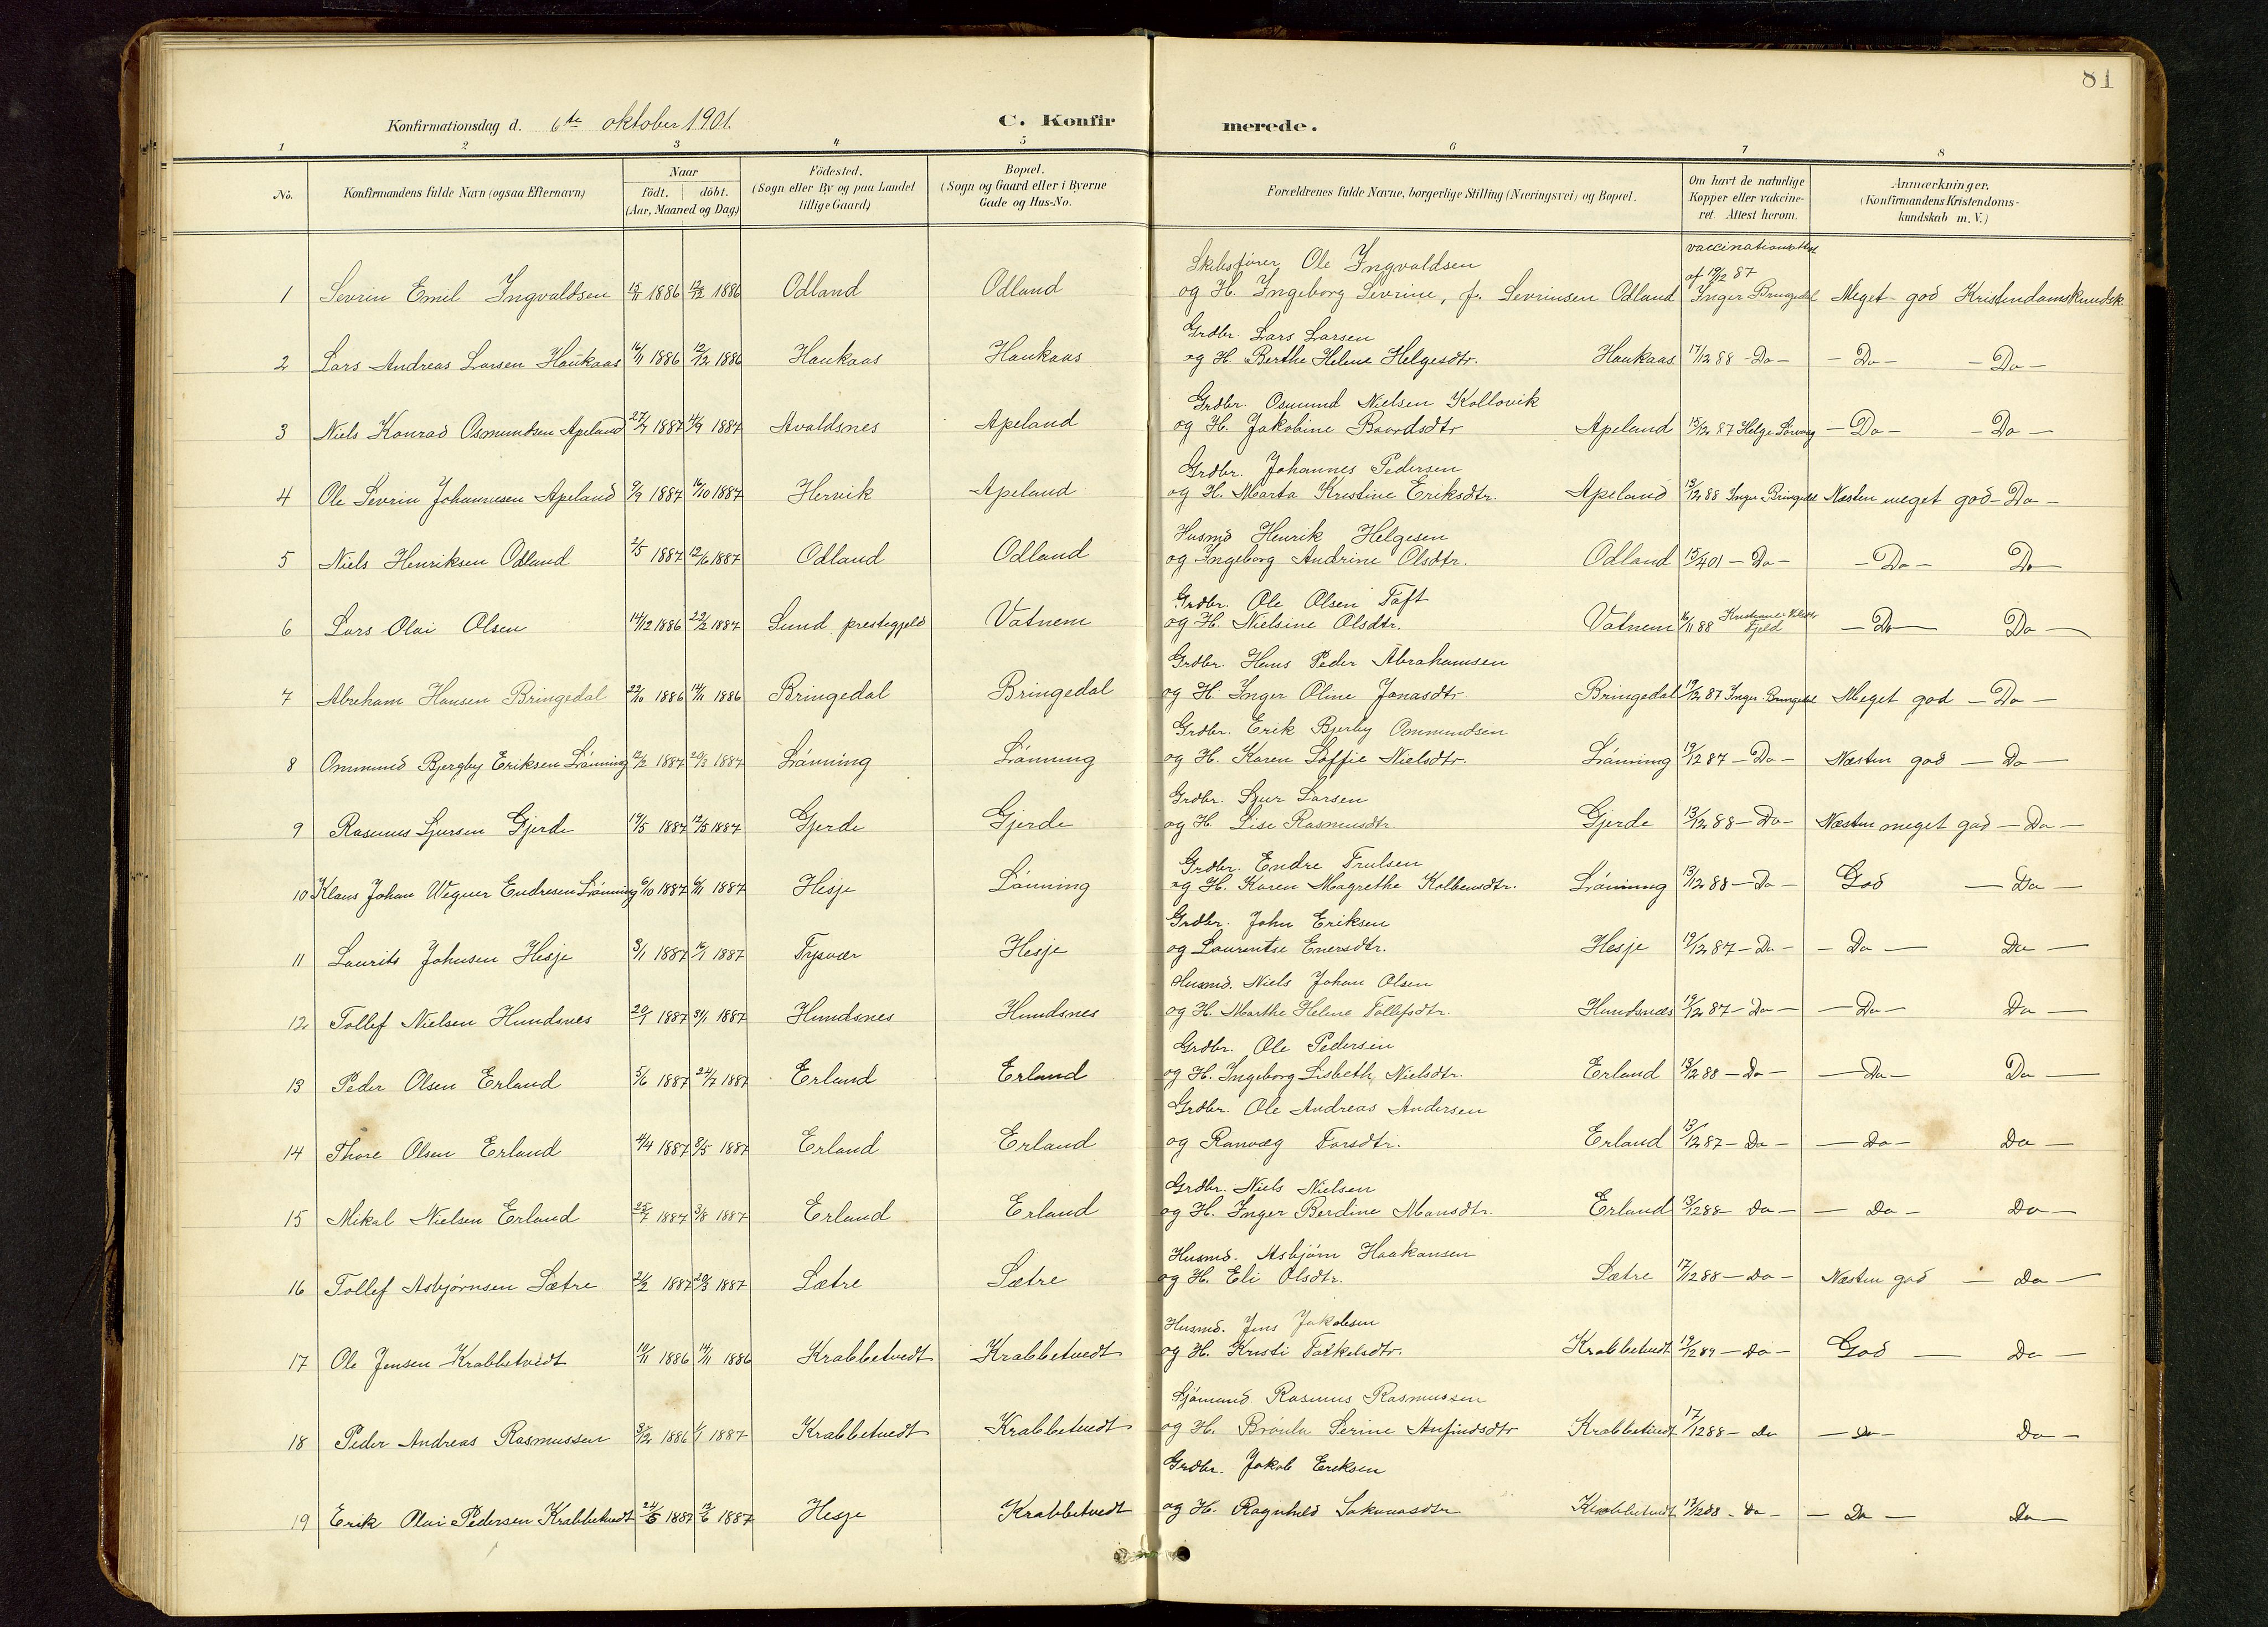 81
Konfirmationsdag d. 6te oktober 1901. C. Konfirmerede.
1 2 3 4 5 6 7 8
No. Konfirmandens fulde Navn (ogsaa Efternavn) Naar født. døbt. (Aar, Maaned og Dag) Födested. (Sogn eller By og paa Landet tillige Gaard) Bopæl. (Sogn og Gaard eller i Byerne Gade og Hus-No. Forældrenes fulde Navne, borgerlige Stilling (Næringsvei) og Bopæl. Om havt de naturlige Kopper eller vakcineret. Attest herom. Anmærkninger. (Konfirmandens Kristendomskundskab m. V.)
Skibsfører Ole Ingvaldsen vaccinationsattest
1 Sevrin Emil Ingvaldsen 15/11 1886 12/12 1886 Odland Odland og H. Ingeborg Sevrine, f. Sevrinsen Odland af 19/12 87 Inger Bringedal Meget god Kristendomskundsk.
Grdbr. Lars Larsen
2 Lars Andreas Larsen Haukaas 16/11 1886 12/12 1886 Haukaas Haukaas og H. Berthe Helene Helgesdtr. Haukaas 17/12 88 - Do - - Do - - Do -
Grdbr. Osmund Nielsen Kollovik
3 Niels Konrad Osmundsen Apeland 27/7 1887 4/9 1887 Avaldsnes Apeland og H. Jakobine Baardsdtr Apeland 15/12 87 Helge - Do - - Do -
Grdbr. Johannes Pedersen
4 Ole Sevrin Johannesen Apeland 9/9 1887 16/10 1887 Hervik Apeland og H. Marta Kristine Eriksdtr. Apeland 13/12 88 Inger Bringedal Næsten meget god - Do -
Husmd Henrik Helgesen
5 Niels Henriksen Odland 2/5 1887 12/6 1887 Odland Odland og Ingeborg Andrine Olsdtr. Odland 15/4 01 - Do - - Do - Do
Grdbr. Ole Olsen Toft
6 Lars Olai Olsen 14/12 1886 22/2 1887 Sund prestegjeld Vatnem og H. Nielsine Olsdtr. Vatnem 16/11 88 Fjeld - Do - Do -
Grdbr. Hans Peder Abrahamsen
7 Abraham Hansen Bringedal 22/10 1886 14/11 1886 Bringedal Bringedal og H. Inger Oline Jonasdtr. Bringedal 19/12 87 Inger Bringedal Meget god - Do -
Grdbr. Erik Bjerby Ommundsen
8 Ommund Bjergby Eriksen Lønning 12/2 1887 20/3 1887 Lønning Lønning og H. Karen Soffie Nielsdtr. Lønning 19/12 87 - Do - Næsten god - Do -
Grdbr. Sjur Larsen
9 Rasmus Sjursen Gjerde 12/5 1887 Gjerde Gjerde og H. Lise Rasmusdtr. Gjerde 13/12 88 - Do - Næsten meget god - Do -
Grdbr. Endre Trulsen
10 Klaus Johan Wegner Endresen Lønning 6/10 1887 6/11 1887 Hesje Lønning og H. Karen Magrethe Kolbensdtr. Lønning 13/12 88 - Do - God - Do -
Grdbr. John Eriksen
11 Laurits Johnsen Hesje 3/1 1887 16/1 1887 Tysvær Hesje og Laurentse Enersdtr. Hesje 19/12 87 - Do - - Do - Do -
Husmd. Niels Johan Olsen
12 Tollef Nielsen Hundsnes 20/1 1887 31/1 1887 Hundsnes Hundsnes og H. Marthe Helene Tollefsdtr. Hundsnæs 19/12 87 - Do - - Do - Do -
Grdbr. Ole Pedersen
13 Peder Olsen Erland 5/6 1887 24/7 1887 Erland Erland og H. Ingeborg Lisbeth Nielsdtr. Erland 13/12 88 - Do - - Do - Do -
Grdbr. Ole Andreas Andersen
14 Thore Olsen Erland 4/4 1887 3/5 1887 Erland Erland og Ranvæg Torsdtr. Erland 13/12 87 - Do - - Do - Do -
Grdbr. Niels Nielsen
15 Mikal Nielsen Erland 25/7 1887 3/8 1887 Erland Erland og H. Inger Berdine Monsdtr. Erland 13/12 88 - Do - - Do - Do -
Husmd. Asbjørn Haakonsen
16 Tollef Asbjørnsen Sætre 21/2 1887 20/3 1887 Sætre Sætre og H. Eli Olsdtr. Sætre 17/12 88 - Do - Næsten god - Do -
Husmd. Jens Jakobsen
17 Ole Jensen Krabbetvedt 10/11 1886 14/11 1886 Krabbetvedt Krabbetvedt og H. Kristi Torkelsdtr. Krabbetvedt 19/12 89 - Do - God - Do -
Sjømand Rasmus Rasmussen
18 Peder Andreas Rasmussen 3/12 1886 1/1 1887 Krabbetvedt Krabbetvedt og H. Serine Anfindsdtr Krabbetvedt 17/12 88 - Do - Do - Do -
Grdbr. Jakob Eriksen
19 Erik Olai Pedersen Krabbetvedt 24/5 1887 12/6 1887 Hesje Krabbetvedt og H. Ragnhild Krabbetvedt 17/12 88 - Do - - Do - Do